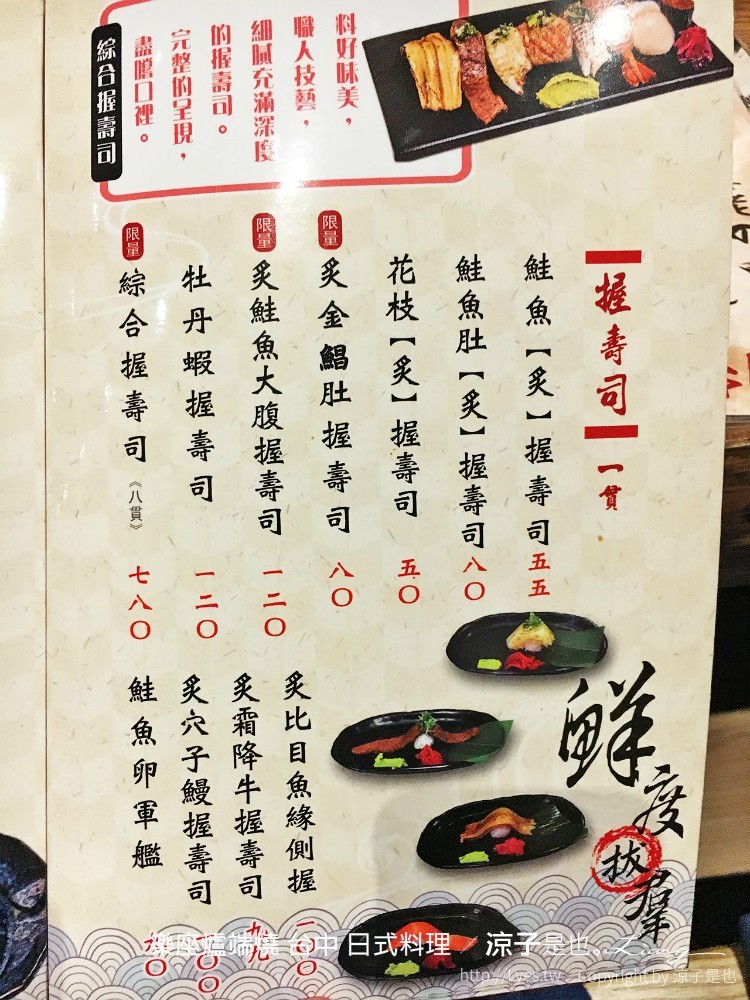 料好味美，
職人技藝，
細膩充滿深度
的握壽司。
完整的呈現，
盡嚐口裡。
綜合握壽司
握壽司 一貫
鮭魚【炙】握壽司 五五
鮭魚肚【炙】握壽司 八〇
花枝【炙】握壽司 五〇
限量 炙金鯧肚握壽司 八〇
限量 炙鮭魚大腹握壽司 一二〇
牡丹蝦握壽司 一二〇
限量 綜合握壽司《八貫》 七八〇
炙比目魚緣側握
炙霜降牛握壽司 九九
炙穴子鰻握壽司
鮭魚卵軍艦
鮮度拔羣
樂座爐端燒 台中 日式料理 涼子是也。
Copyright by 涼子是也